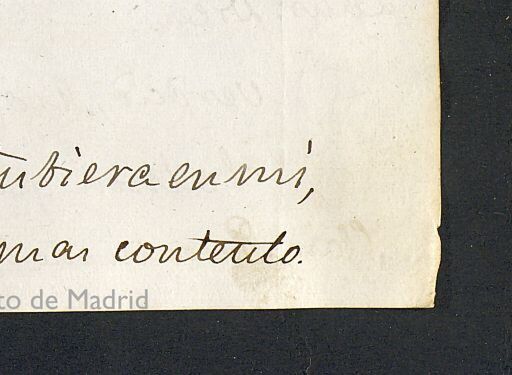 tubiera en mi,
mas contento.
to de Madrid